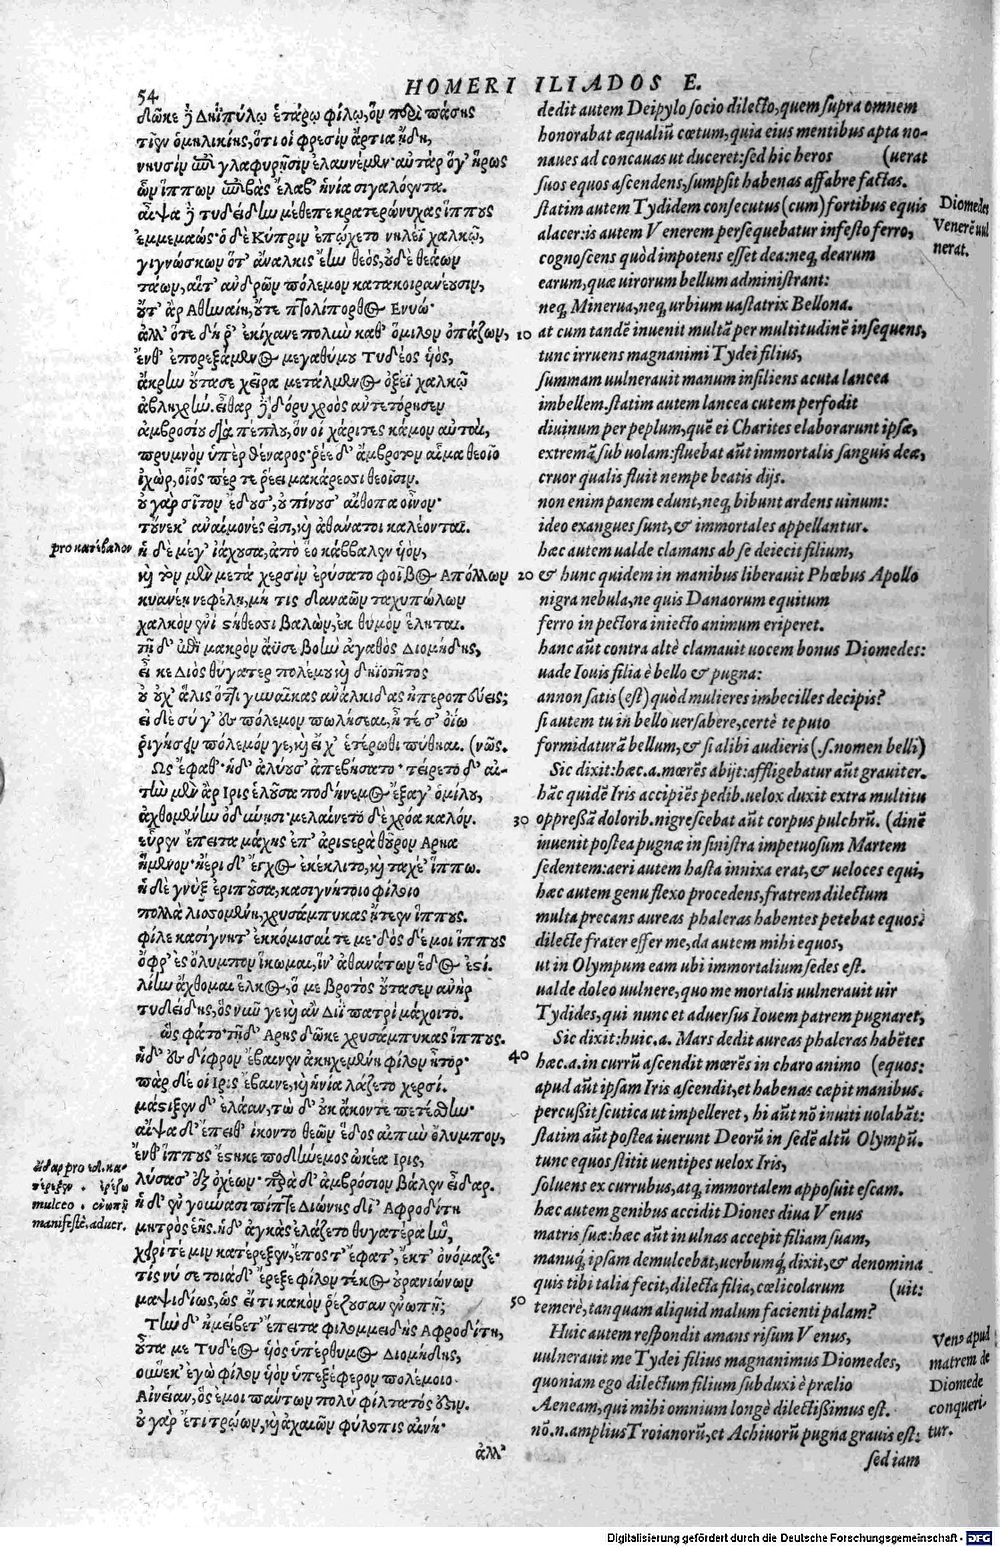 54
HOMERI ILIADOS E.
δῶκε δὲ Δηϊπύλῳ ἑτάρῳ φίλῳ, ὃν περὶ πάσης
τῖεν ὁμηλικίης, ὅτι οἱ φρεσὶν ἄρτια ᾔδη,
νηυσὶν ἐπὶ γλαφυρῇσιν ἐλαυνέμεν· αὐτὰρ ὅγ' ἥρως
ὧν ἵππων ἐπιβὰς ἔλαβ' ἡνία σιγαλόεντα.
αἶψα δὲ τυδείδην μέθεπε κρατερώνυχας ἵππους
ἐμμεμαώς· ὁ δὲ Κύπριν ἐπῴχετο νηλέϊ χαλκῷ,
γιγνώσκων ὅτ' ἄναλκις ἔην θεὸς, οὐδὲ θεάων
τάων, αἵτ' ἀνδρῶν πόλεμον κατακοιρανέουσιν,
οὔτ' ἂρ Αθηναίη, οὔτε πτολίπορθος Ενυώ·
ἀλλ' ὅτε δή ῥ' ἐκίχανε πολὺν καθ' ὅμιλον ὀπάζων, 10
ἔνθ' ἐπορεξάμενος μεγαθύμου Τυδέος υἱὸς,
ἄκρην οὔτασε χεῖρα μετάλμενος ὀξέϊ χαλκῷ
ἀβληχρήν. εἶθαρ δὲ δόρυ χροὸς ἀντετόρησεν
ἀμβροσίου διὰ πέπλου, ὅν οἱ χάριτες κάμον αὐταὶ,
πρυμνὸν ὑπὲρ θέναρος· ῥέε δ' ἄμβροτον αἷμα θεοῖο
ἰχὼρ, οἷός πέρ τε ῥέει μακάρεσσι θεοῖσιν.
οὐ γὰρ σῖτον ἔδουσ', οὐ πίνουσ' αἴθοπα οἶνον·
τούνεκ' ἀναίμονές εἰσι, καὶ ἀθάνατοι καλέονται.
pro κατέβαλον
ἡ δὲ μέγ' ἰάχουσα, ἀπὸ ἕο κάββαλεν υἱὸν,
καὶ τὸν μὲν μετὰ χερσὶν ἐρύσατο φοῖβος Απόλλων 20
κυανέῃ νεφέλῃ, μή τις δαναῶν ταχυπώλων
χαλκὸν ἐνὶ στήθεσσι βαλὼν, ἐκ θυμὸν ἕληται.
τῇ δ' ἐπὶ μακρὸν ἄϋσε βοὴν ἀγαθὸς Διομήδης,
εἶκε Διὸς θύγατερ πολέμου καὶ δηϊοτῆτος
ἦ οὐχ' ἅλις ὅττι γυναῖκας ἀνάλκιδας ἠπεροπεύεις;
εἰ δὲ σύ γ' ἐς πόλεμον πωλήσεαι, ἦ τέ σ' ὀΐω
ῥιγήσειν πόλεμόν γε, καὶ εἴ χ' ἑτέρωθι πύθηαι. (νῶς.
Ως ἔφαθ'· ἡ δ' ἀλύουσ' ἀπεβήσατο· τείρετο δ' αἰ-
τὴν μὲν ἂρ Ιρις ἑλοῦσα ποδήνεμος ἔξαγ' ὁμίλου,
ἀχθομένην ὀδύνῃσι· μελαίνετο δὲ χρόα καλόν. 30
εὗρεν ἔπειτα μάχης ἐπ' ἀριστερὰ θοῦρον Αρηα
ἥμενον· ἠέρι δ' ἔγχος ἐκέκλιτο, καὶ ταχέ' ἵππω.
ἡ δὲ γνὺξ ἐριποῦσα, κασιγνήτοιο φίλοιο
πολλὰ λισσομένη, χρυσάμπυκας ᾔτεεν ἵππους.
φίλε κασίγνητ' ἐκκόμισαί τέ με· δὸς δέ μοι ἵππους
ὄφρ' ἐς ὄλυμπον ἵκωμαι, ἵν' ἀθανάτων ἕδος ἐστί.
λίην ἄχθομαι ἕλκος, ὅ με βροτὸς οὔτασεν ἀνὴρ
τυδείδης, ὃς νῦν γε καὶ ἂν Διῒ πατρὶ μάχοιτο.
ὣς φάτο· τῇ δ' Αρης δῶκε χρυσάμπυκας ἵππους.
ἡ δ' ἐς δίφρον ἔβαινεν ἀκηχεμένη φίλον ἦτορ· 40
πὰρ δέ οἱ Ιρις ἔβαινε, καὶ ἡνία λάζετο χερσί.
μάστιξεν δ' ἐλάαν, τὼ δ' οὐκ ἄκοντε πετέσθην·
αἶψα δ' ἔπειθ' ἵκοντο θεῶν ἕδος αἰπὺν ὄλυμπον,
ἔνθ' ἵππους ἔστησε ποδήνεμος ὠκέα Ιρις,
λύσασ' ἐξ ὀχέων· παρὰ δ' ἀμβρόσιον βάλεν εἶδαρ.
ἡ δ' ἐν γούνασι πίπτε Διώνης δῖ' Αφροδίτη
μητρὸς ἑῆς. ἡ δ' ἀγκὰς ἐλάζετο θυγατέρα ἣν,
χειρί τέ μιν κατέρεξεν, ἔπος τ' ἔφατ', ἔκ τ' ὀνόμαζε·
τίς νύ σε τοιάδ' ἔρεξε φίλον τέκος οὐρανιώνων
μαψιδίως, ὡς εἴ τι κακὸν ῥέζουσαν ἐνωπῇ; 50
Τὴν δ' ἠμείβετ' ἔπειτα φιλομμειδὴς Αφροδίτη,
οὖτά με Τυδέος υἱὸς ὑπέρθυμος Διομήδης,
οὕνεκ' ἐγὼ φίλον υἱὸν ὑπεξέφερον πολέμοιο·
Αἰνείαν, ὃς ἐμοὶ πάντων πολὺ φίλτατός ἐστιν.
οὐ γὰρ ἔτι τρώων, καὶ ἀχαιῶν φύλοπις αἰνή·
ἀλλ'
εἶδαρ pro
κατέρεξεν
mulceo . ἐνωπῇ
manifestè, aduer.
dedit autem Deipylo socio dilecto, quem supra omnem
honorabat æqualiũ cœtum, quia eius mentibus apta no-
naues ad concauas ut duceret: sed hic heros (uerat
suos equos ascendens, sumpsit habenas affabre factas.
statim autem Tydidem consecutus (cum) fortibus equis
alacer: is autem Venerem persequebatur infesto ferro,
cognoscens quòd impotens esset dea: neq; dearum
earum, quæ uirorum bellum administrant:
neq; Minerua, neq; urbium uastatrix Bellona.
at cum tandẽ inuenit multã per multitudinẽ insequens,
tunc irruens magnanimi Tydei filius,
summam uulnerauit manum insiliens acuta lancea
imbellem. statim autem lancea cutem perfodit
diuinum per peplum, quẽ ei Charites elaborarunt ipsæ,
extremã sub uolam: fluebat aũt immortalis sanguis deæ,
cruor qualis fluit nempe beatis dijs.
non enim panem edunt, neq; bibunt ardens uinum:
ideo exangues sunt, & immortales appellantur.
hæc autem ualde clamans ab se deiecit filium,
& hunc quidem in manibus liberauit Phœbus Apollo
nigra nebula, ne quis Danaorum equitum
ferro in pectora iniecto animum eriperet.
hanc aũt contra altè clamauit uocem bonus Diomedes:
uade Iouis filia è bello & pugna:
annon satis (est) quòd mulieres imbecilles decipis?
si autem tu in bello uersabere, certè te puto
formidaturã bellum, & si alibi audieris (.s. nomen belli)
Sic dixit: hæc .a. mœrẽs abijt: affligebatur aũt grauiter.
hãc quidẽ Iris accipiẽs pedib. uelox duxit extra multitu
oppressã dolorib. nigrescebat aũt corpus pulchrũ. (dinẽ
inuenit postea pugnæ in sinistra impetuosum Martem
sedentem: aeri autem hasta innixa erat, & ueloces equi,
hæc autem genu flexo procedens, fratrem dilectum
multa precans aureas phaleras habentes petebat equos:
dilecte frater effer me, da autem mihi equos,
ut in Olympum eam ubi immortalium sedes est.
ualde doleo uulnere, quo me mortalis uulnerauit uir
Tydides, qui nunc et aduersus Iouem patrem pugnaret,
Sic dixit: huic .a. Mars dedit aureas phaleras habẽtes
hæc .a. in currũ ascendit mœrẽs in charo animo (equos:
apud aũt ipsam Iris ascendit, et habenas cœpit manibus.
percußit scutica ut impelleret, hi aũt nõ inuiti uolabãt:
statim aũt postea iuerunt Deorũ in sedẽ altũ Olympũ.
tunc equos stitit uentipes uelox Iris,
soluens ex curribus, atq; immortalem apposuit escam.
hæc autem genibus accidit Diones diua Venus
matris suæ: hæc aũt in ulnas accepit filiam suam,
manuq; ipsam demulcebat, uerbumq; dixit, & denomina
quis tibi talia fecit, dilecta filia, cœlicolarum (uit:
temerè, tanquam aliquid malum facienti palam?
Huic autem respondit amans risum Venus,
uulnerauit me Tydei filius magnanimus Diomedes,
quoniam ego dilectum filium subduxi è prælio
Aeneam, qui mihi omnium longè dilectißimus est.
nõ .n. amplius Troianorũ, et Achiuorũ pugna grauis est:
sed iam
Diomedes
Venerẽ uul
nerat.
Venus apud
matrem de
Diomede
conqueri-
tur.
Digitalisierung gefördert durch die Deutsche Forschungsgemeinschaft - DFG